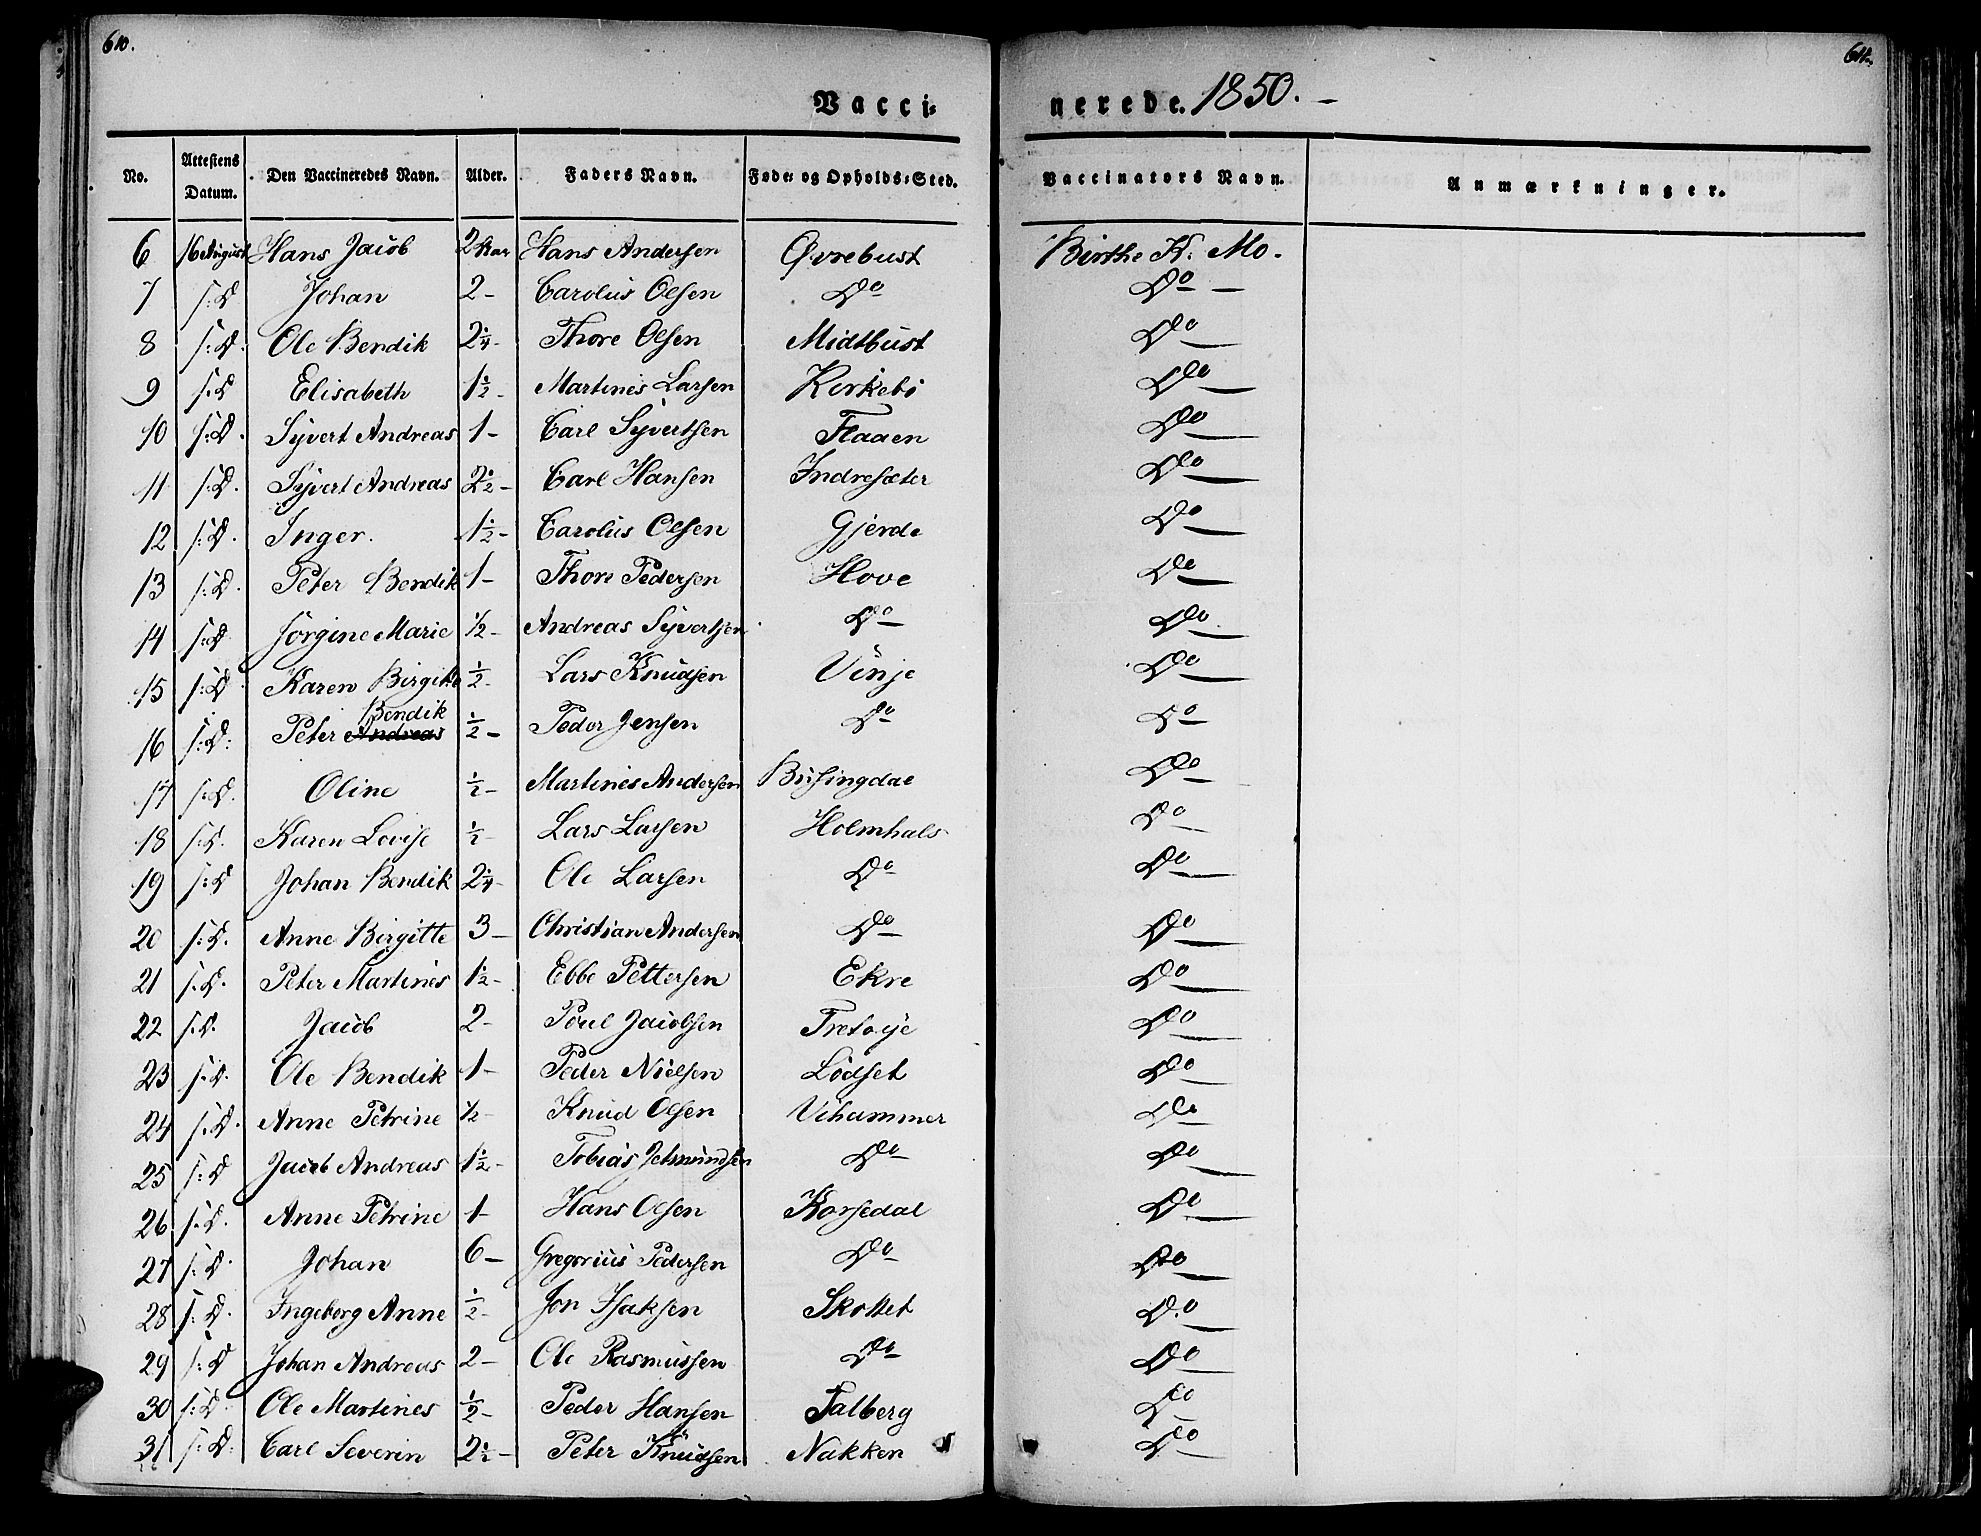 610.
611.
Vacci-
nerede. 1850. -
No. Attestens Datum. Den Vaccineredes Navn. Alder. Faders Navn. Føde- og Opholds-Sted. Vaccinators Navn. Anmærkninger.
6 16 August Hans Jacob 2 Aar Hans Andersen Øvrebust Birthe K. Mo.
7 s: D Johan 2 - Carolus Olsen Do Do -
8 s: D. Ole Bendik 2 1/4 - Thore Olsen Midtbust Do
9 s: D Elisabeth 1 1/2 - Martines Larsen Kirkebö Do
10 s: D. Syvert Andreas 1 - Carl Syvertsen Flaaen Do
11 s: D. Syvert Andreas 2 1/2 - Carl Hansen Indresæter Do
12 s: D. Inger. 1 1/2 - Carolus Olsen Gjerde Do
13 s: D. Peter Bendik 1 - Thore Pedersen Hove Do
14 s: D. Jörgine Marie 1/2 - Andreas Syvertsen Do Do
15 s: D. Karen Birgitte 1/2 - Lars Knudsen Vinje Do
16 s: D: Peter Andreas Bendik 1/2 - Peder Jensen Do Do
17 s: D. Oline 1/2 - Martines Andersen Busingdal Do
18 s: D. Karen Lovise 1/2 - Lars Larsen Holmhals Do
19 s: D Johan Bendik 2 1/4 - Ole Larsen Do Do
20 s: D. Anne Birgitte 3 - Christian Andersen Do Do
21 s: D. Peter Martines 1 1/2 - Ebbe Pettersen Ekre Do
22 s: D. Jacob 2 - Poul Jacobsen Tretöje Do
23 s: D. Ole Bendik 1 - Peder Nielsen Lödset Do
24 s: D. Anne Petrine 1/2 - Knud Olsen Vihammer Do
25 s: D Jacob Andreas 1 1/2 - Tobias Do Do
26 s: D. Anne Petrine 1 - Hans Olsen Korsedal Do
27 s: D. Johan 6 - Gregorius Pedersen Do Do
28 s: D. Ingeborg Anne 1/2 - Jon Isaksen Skottet Do
29 s: D Johan Andreas 2 - Ole Rasmussen Do Do
30 s: D. Ole Martines 1/2 - Peder Hansen Talberg Do
31 s: D. Carl Severin 2 1/2 - Peter Knudsen Nakken Do